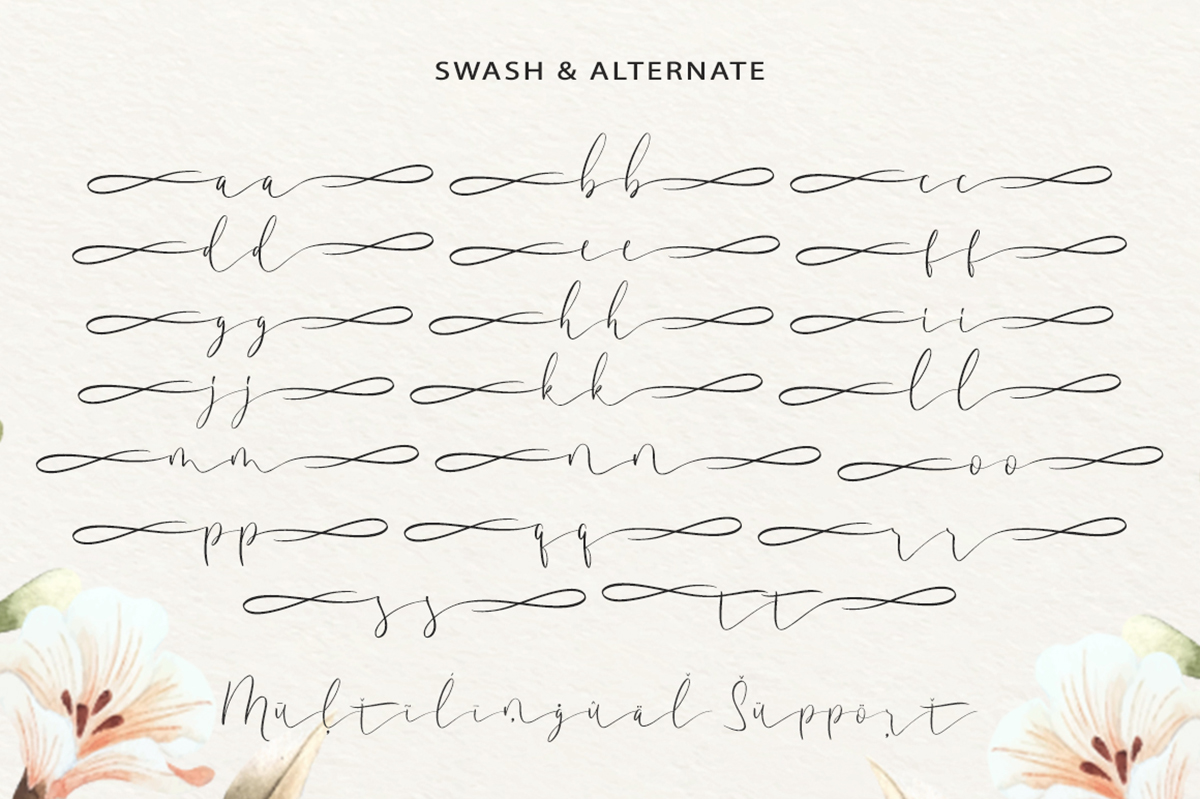 SWASH & ALTERNATE
aa bb cc
dd ee ff
gg hh ii
jj kk ll
mm nn oo
pp qq rr
ss tt
Müļťïĺïņġüäľ Šüppöŗť